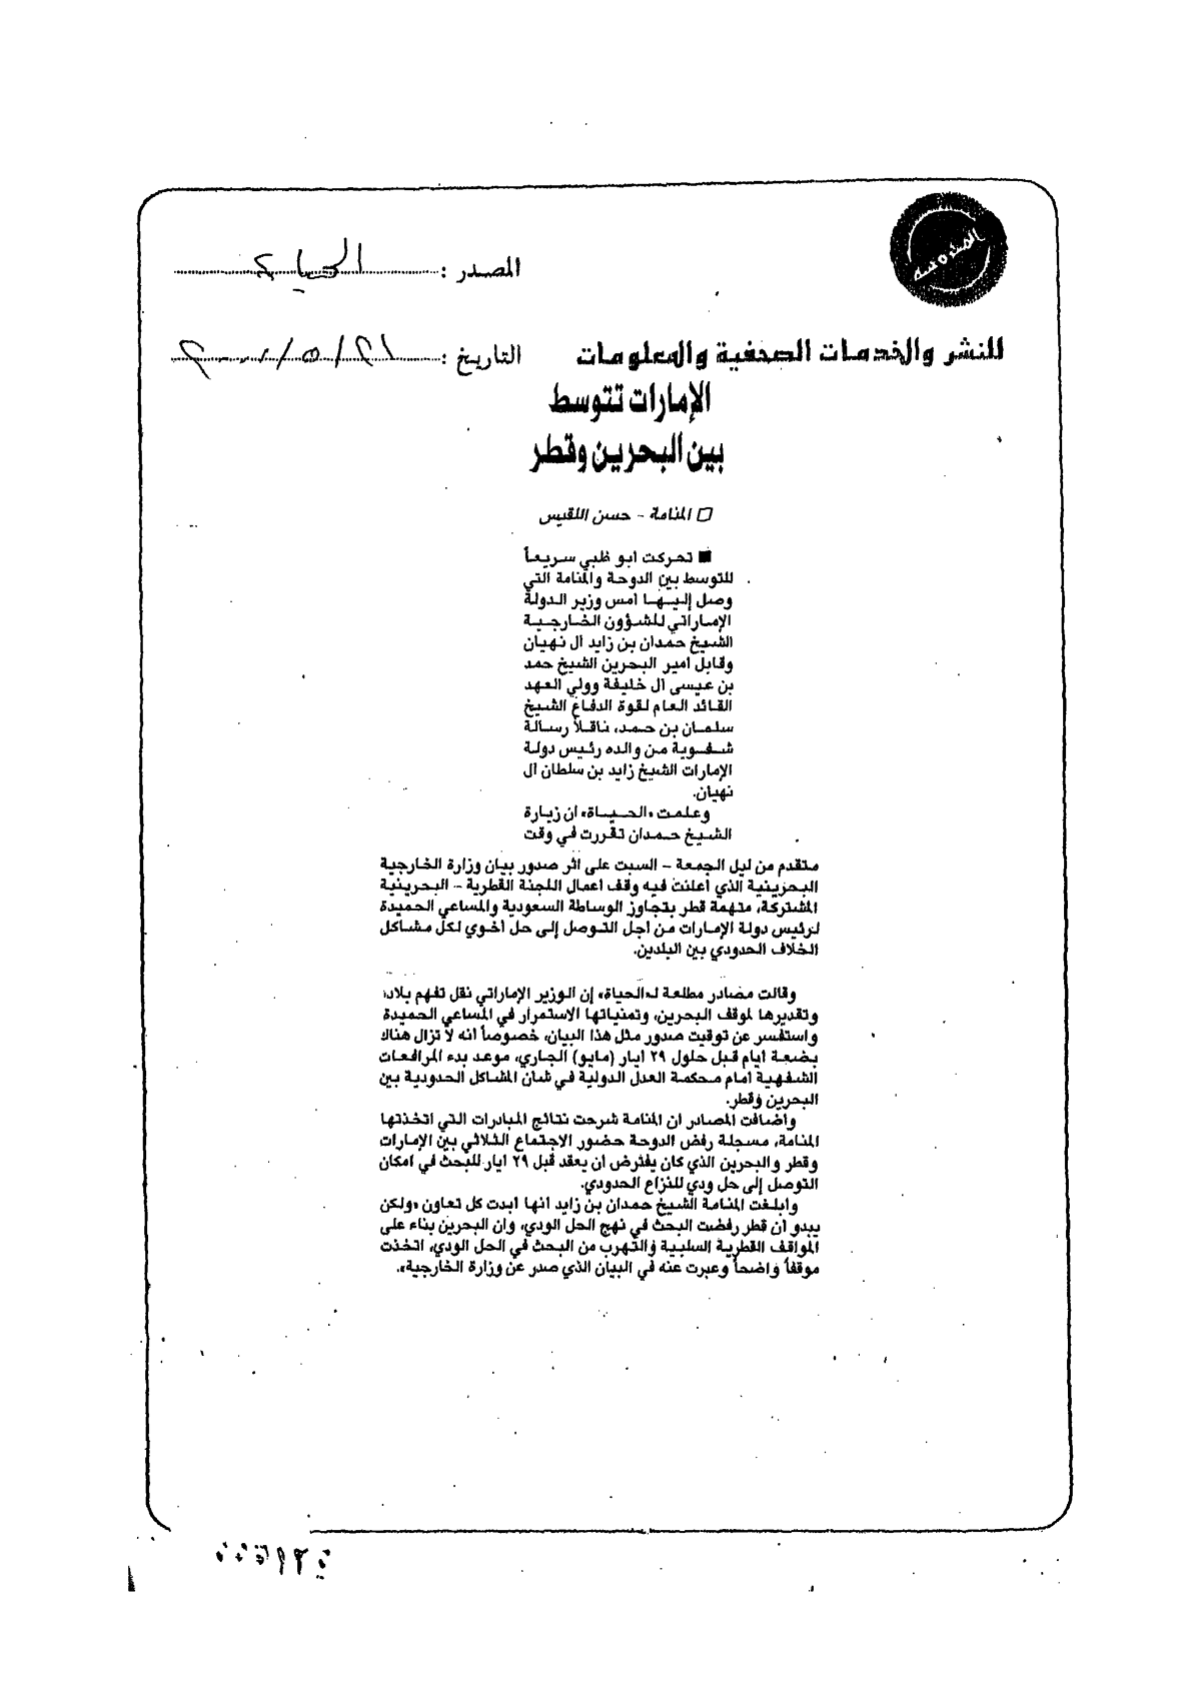 المصدر : الحياة
للنشر والخدمات الصحفية والمعلومات
التاريخ : ٢١/٥/٢٠٠٠
الإمارات تتوسط
بين البحرين وقطر
المنامة - حسن اللقيس
■ تحركت ابو ظبي سريعاً
للتوسط بين الدوحة والمنامة التي
وصل إليها امس وزير الدولة
الإماراتي للشؤون الخارجية
الشيخ حمدان بن زايد آل نهيان
وقابل امير البحرين الشيخ حمد
بن عيسى آل خليفة وولي العهد
القائد العام لقوة الدفاع الشيخ
سلمان بن حمد، ناقلاً رسالة
شفوية من والده رئيس دولة
الإمارات الشيخ زايد بن سلطان آل
نهيان.
وعلمت «الحياة» ان زيارة
الشيخ حمدان تقررت في وقت
متقدم من ليل الجمعة - السبت على اثر صدور بيان وزارة الخارجية
البحرينية الذي أعلنت فيه وقف اعمال اللجنة القطرية - البحرينية
المشتركة، متهمة قطر بتجاوز الوساطة السعودية والمساعي الحميدة
لرئيس دولة الإمارات من اجل التوصل إلى حل اخوي لكل مشاكل
الخلاف الحدودي بين البلدين.
وقالت مصادر مطلعة لـ«الحياة» إن الوزير الإماراتي نقل تفهم بلاده
وتقديرها لموقف البحرين، وتمنياتها الاستمرار في المساعي الحميدة
واستفسر عن توقيت صدور مثل هذا البيان، خصوصاً انه لا تزال هناك
بضعة ايام قبل حلول ٢٩ ايار (مايو) الجاري، موعد بدء المرافعات
الشفهية امام محكمة العدل الدولية في شان المشاكل الحدودية بين
البحرين وقطر.
واضافت المصادر ان المنامة شرحت نتائج المبادرات التي اتخذتها
المنامة، مسجلة رفض الدوحة حضور الاجتماع الثلاثي بين الإمارات
وقطر والبحرين الذي كان يفترض ان يعقد قبل ٢٩ ايار للبحث في امكان
التوصل إلى حل ودي للنزاع الحدودي.
وابلغت المنامة الشيخ حمدان بن زايد انها ابدت كل تعاون «ولكن
يبدو ان قطر رفضت البحث في نهج الحل الودي، وان البحرين بناء على
المواقف القطرية السلبية والتهرب من البحث في الحل الودي، اتخذت
موقفاً واضحاً وعبرت عنه في البيان الذي صدر عن وزارة الخارجية».